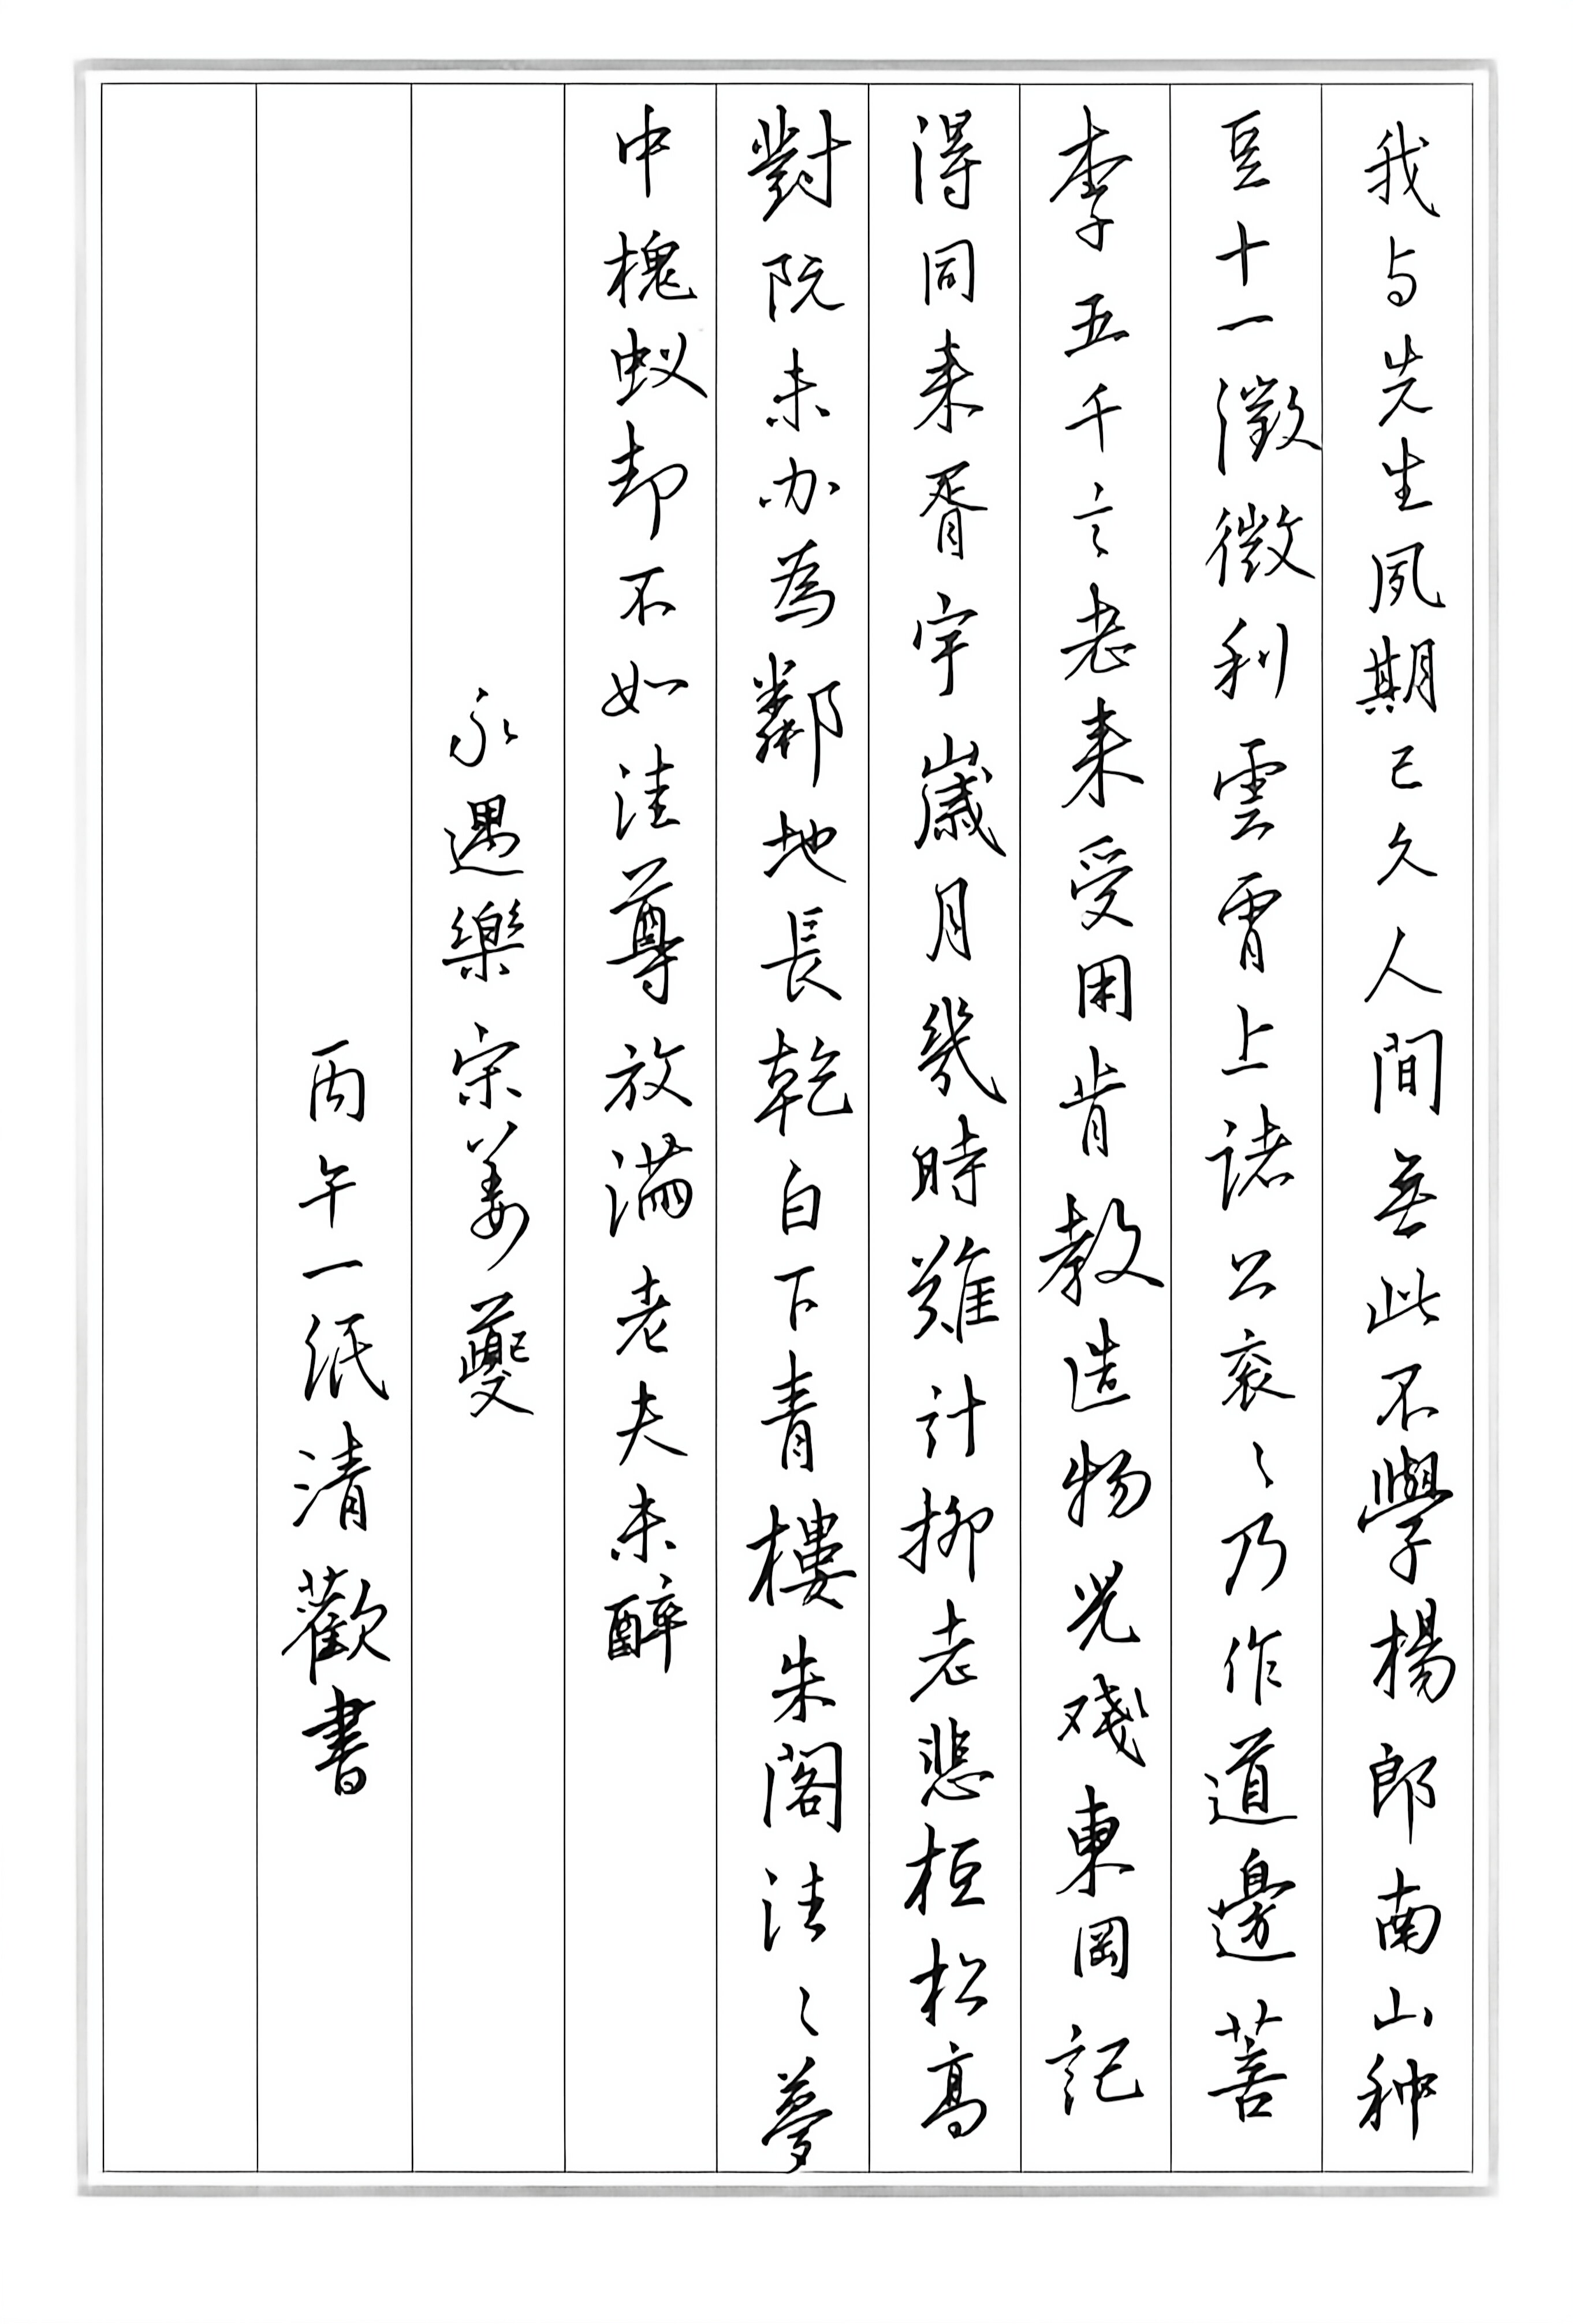 我与先生夙期已久人間無此不學楊郎南山种
豆十一徵微利雲霄上諸公衮〻乃作道邊苦
李五千言老来受用肯教造物兒戏東岡記
得同来胥宇歲月幾時難計柳老悲桓松高
對阮未办為鄰地長乾白下青樓朱阁往〻夢
中槐蚁却不如洼尊放滿老夫未醉
永遇樂宋姜夔
丙午一紙清歡書